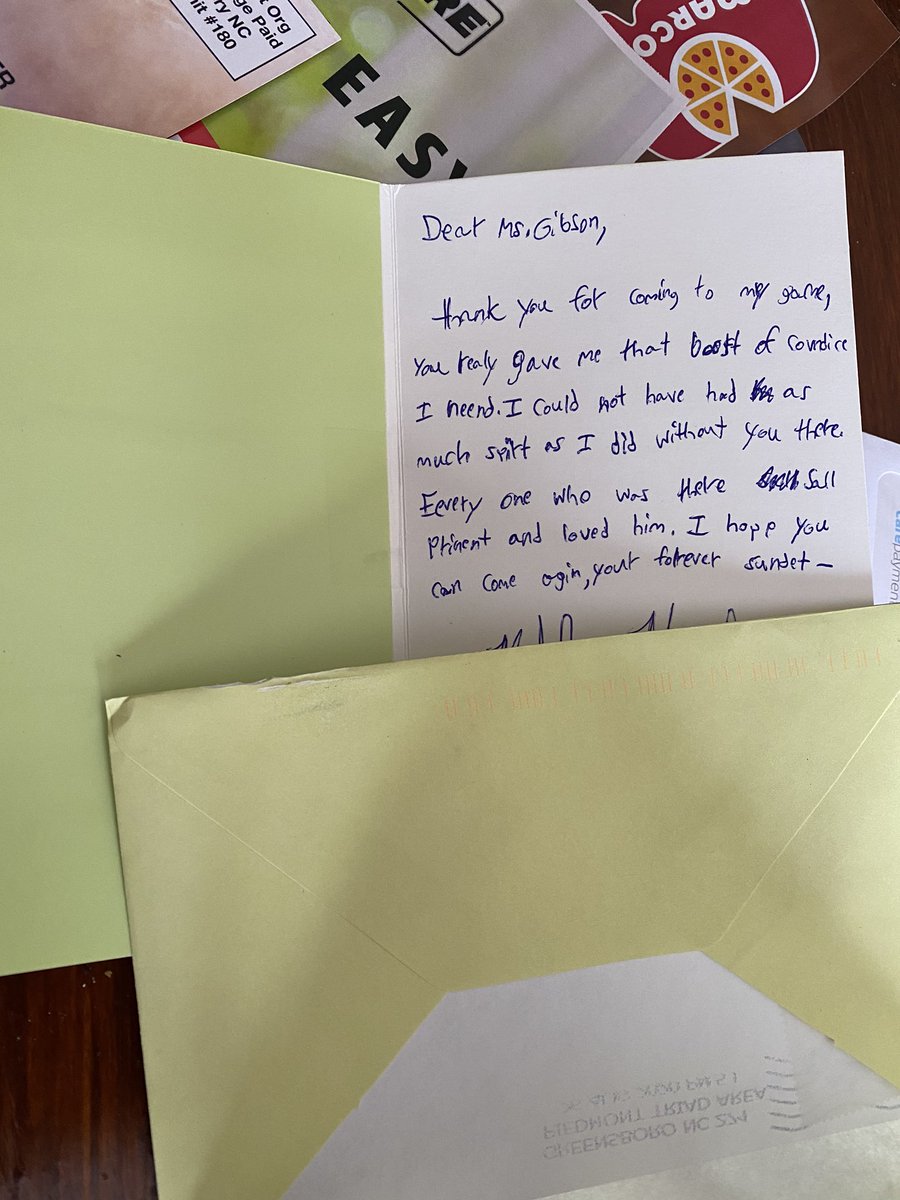 t Org
ge Paid
ry NC
nit #180
ER
RE
EASY
MARCO
Dear Ms. Gibson,
thank you for coming to my game,
you realy gave me that boost of covndice
I neend. I could not have had as
much spirt as I did without you there.
Eevery one who was there Sall
Prinent and loved him. I hope you
can come agin, your forever sundet —
carepayment
GREENSBORO NC 274
PIEDMONT TRIAD AREA